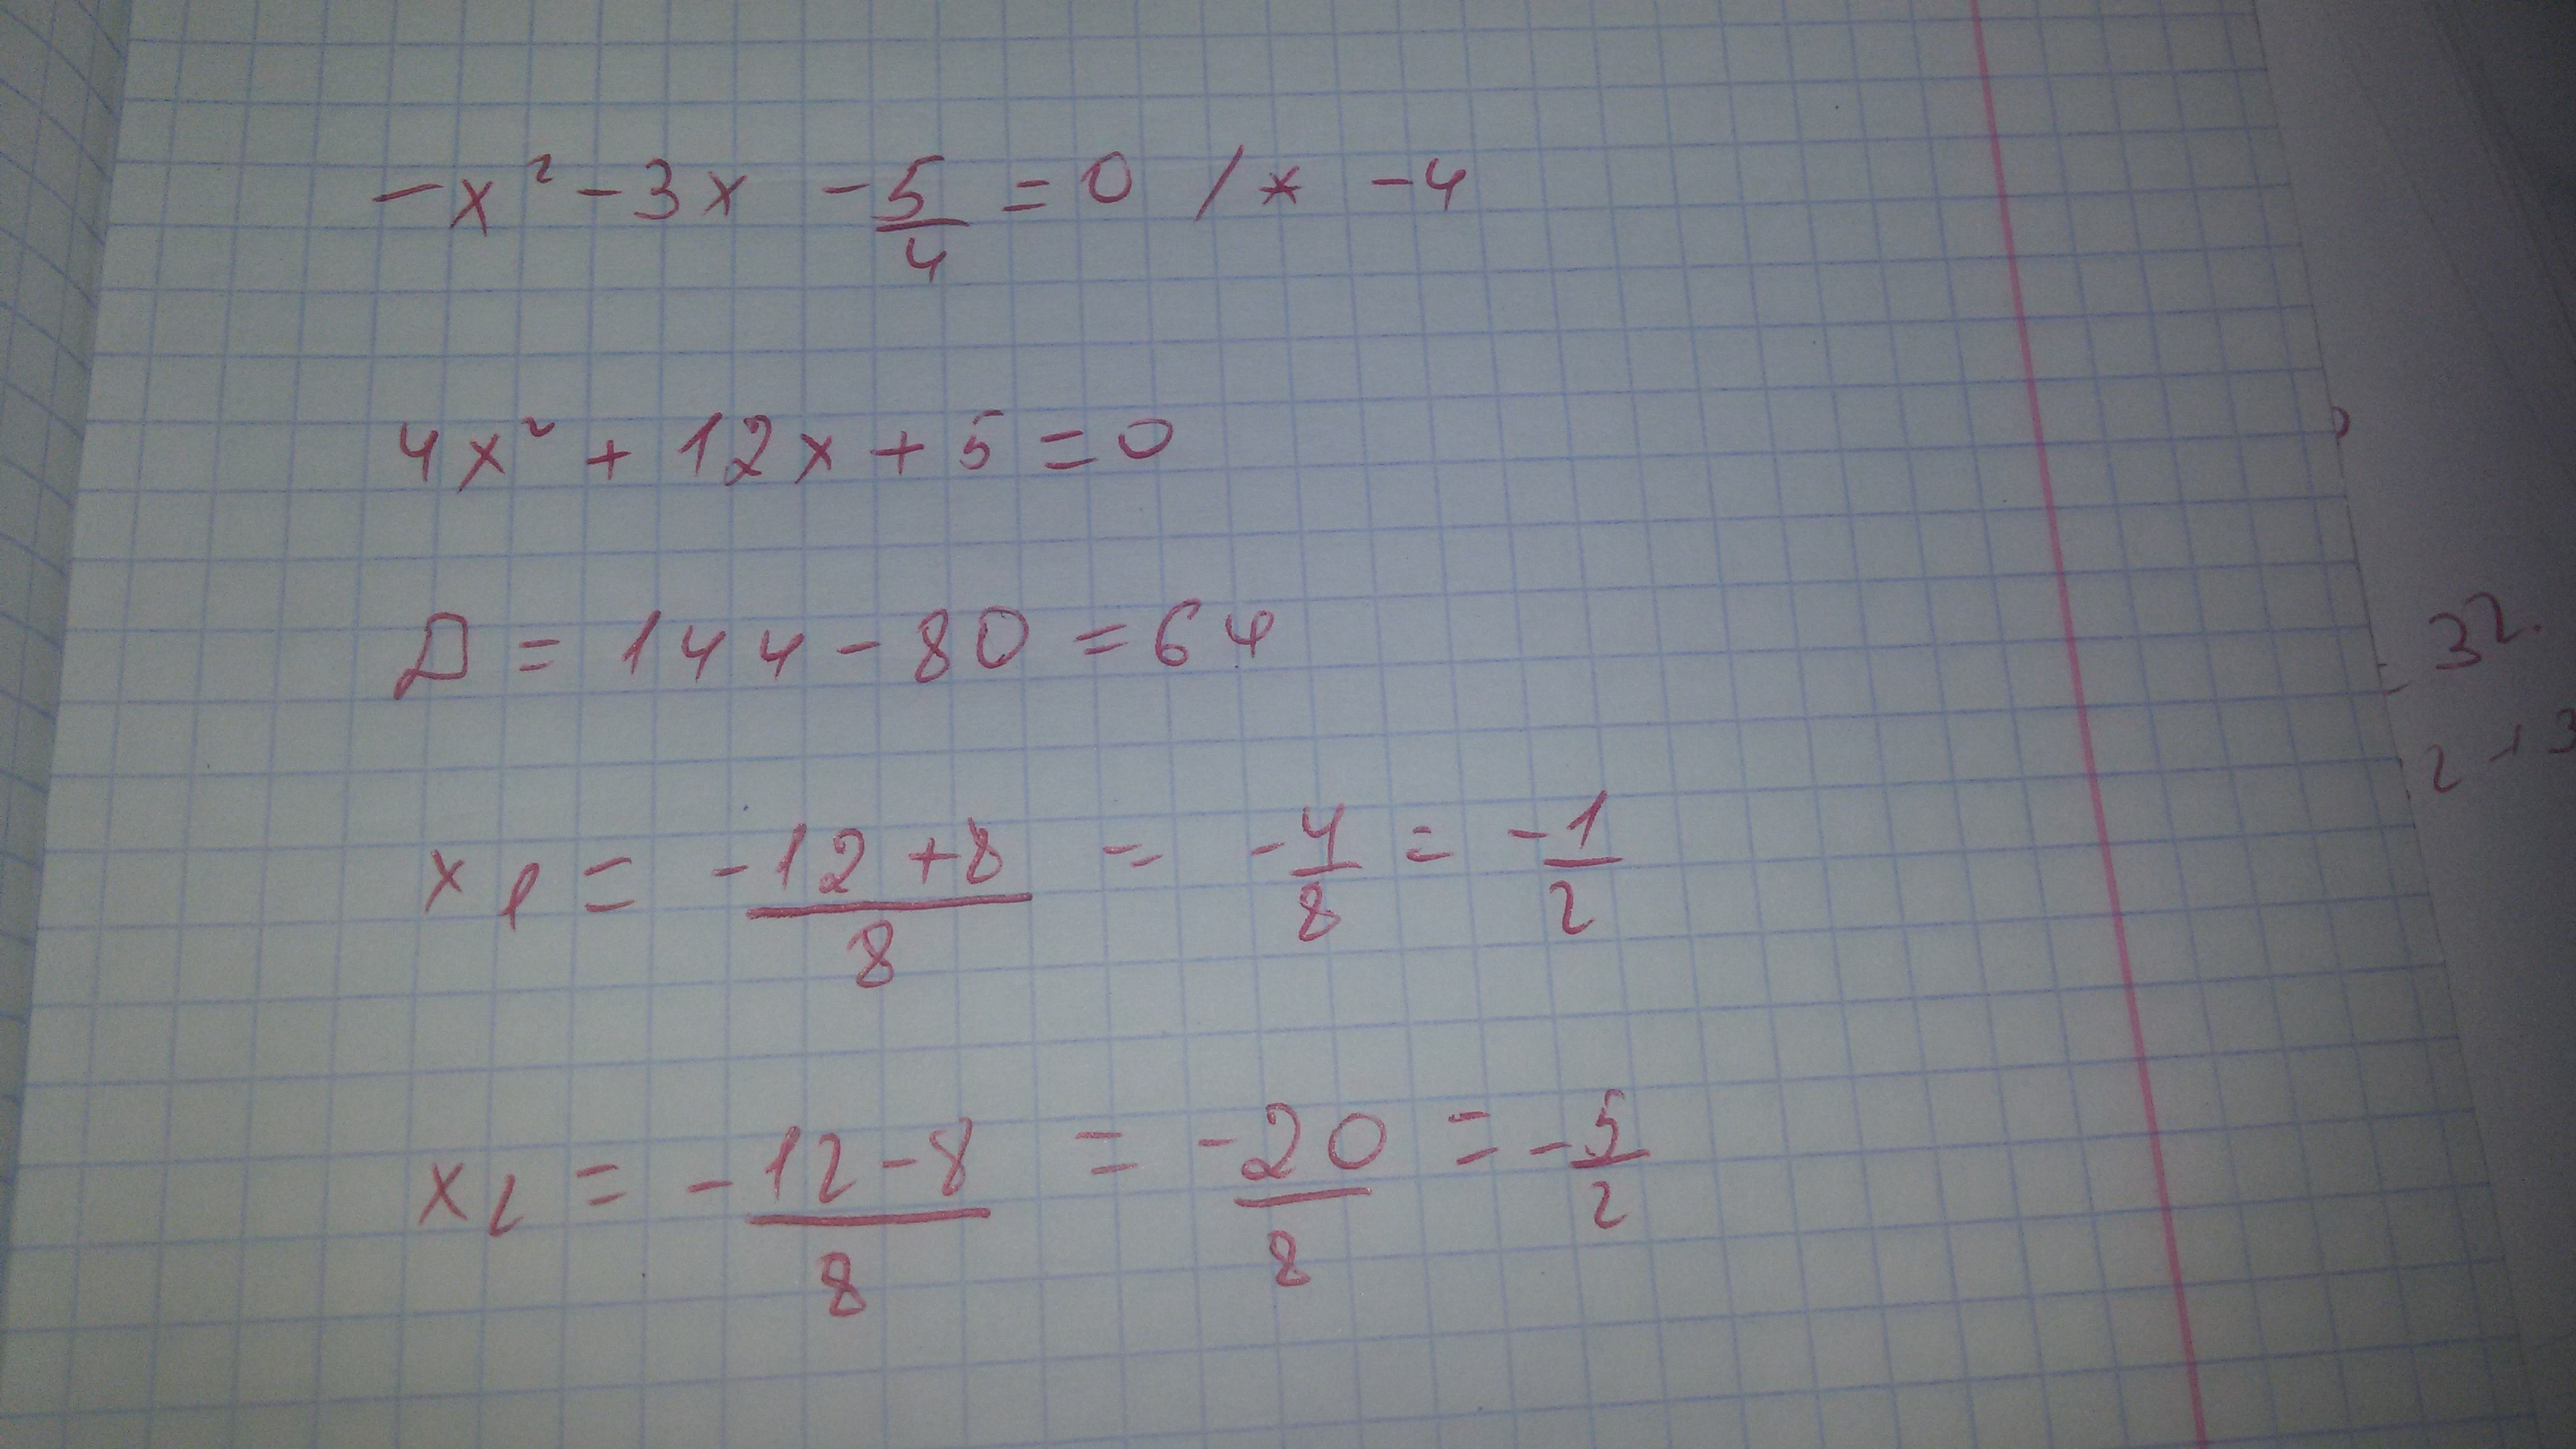 -x² - 3x - 5/4 = 0 / * -4
4x² + 12x + 5 = 0
D = 144 - 80 = 64
x₁ = (-12 + 8)/8 = -4/8 = -1/2
x₂ = (-12 - 8)/8 = -20/8 = -5/2
32.
2 + 3